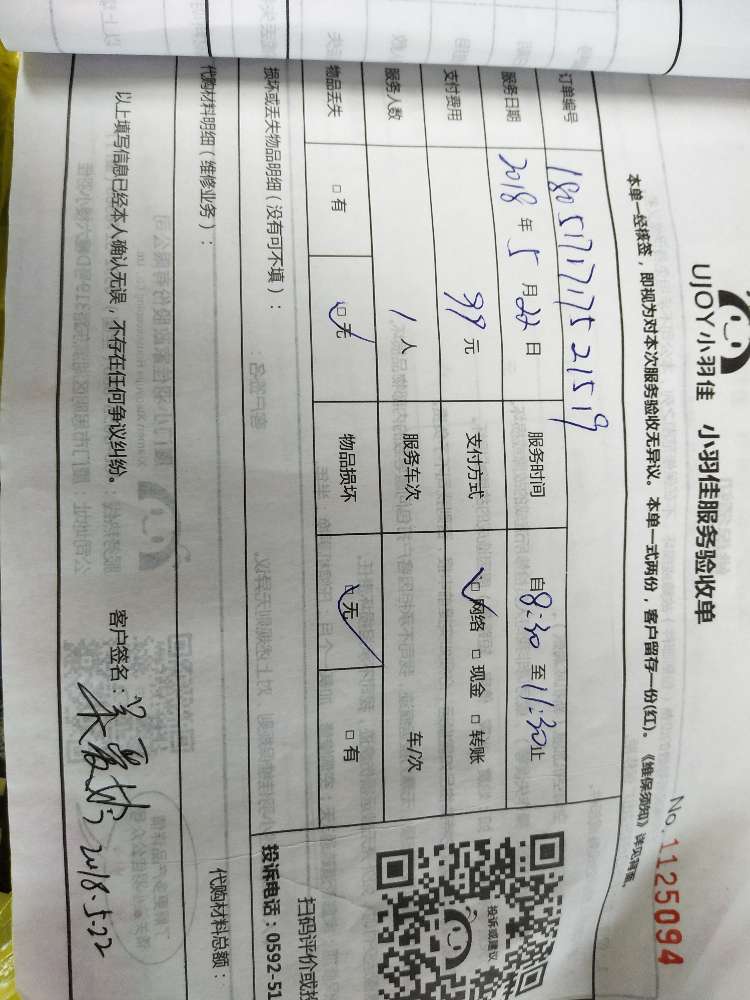 UJOY小羽佳 小羽佳服务验收单
No. 1125094
本单一经接签，即视为对本次服务验收无异议。本单一式两份，客户留存一份(红)。《维保须知》详见背面。
订单编号 180517171752 1519
服务日期 2018 年 5 月 22 日 服务时间 自 8:30 至 11:30 止
支付费用 99 元 支付方式 □ 网络 □ 现金 □ 转账
服务人数 1 人 服务车次 车/次
物品丢失 □ 有 □ 无 物品损坏 □ 无 □ 有
损坏或丢失物品明细（没有可不填）：
代购材料明细（维修业务）： 代购材料总额：
投诉或建议
扫码评价或投
投诉电话：0592-51
以上填写信息已经本人确认无误，不存在任何争议纠纷。 客户签名： 2018.5.22